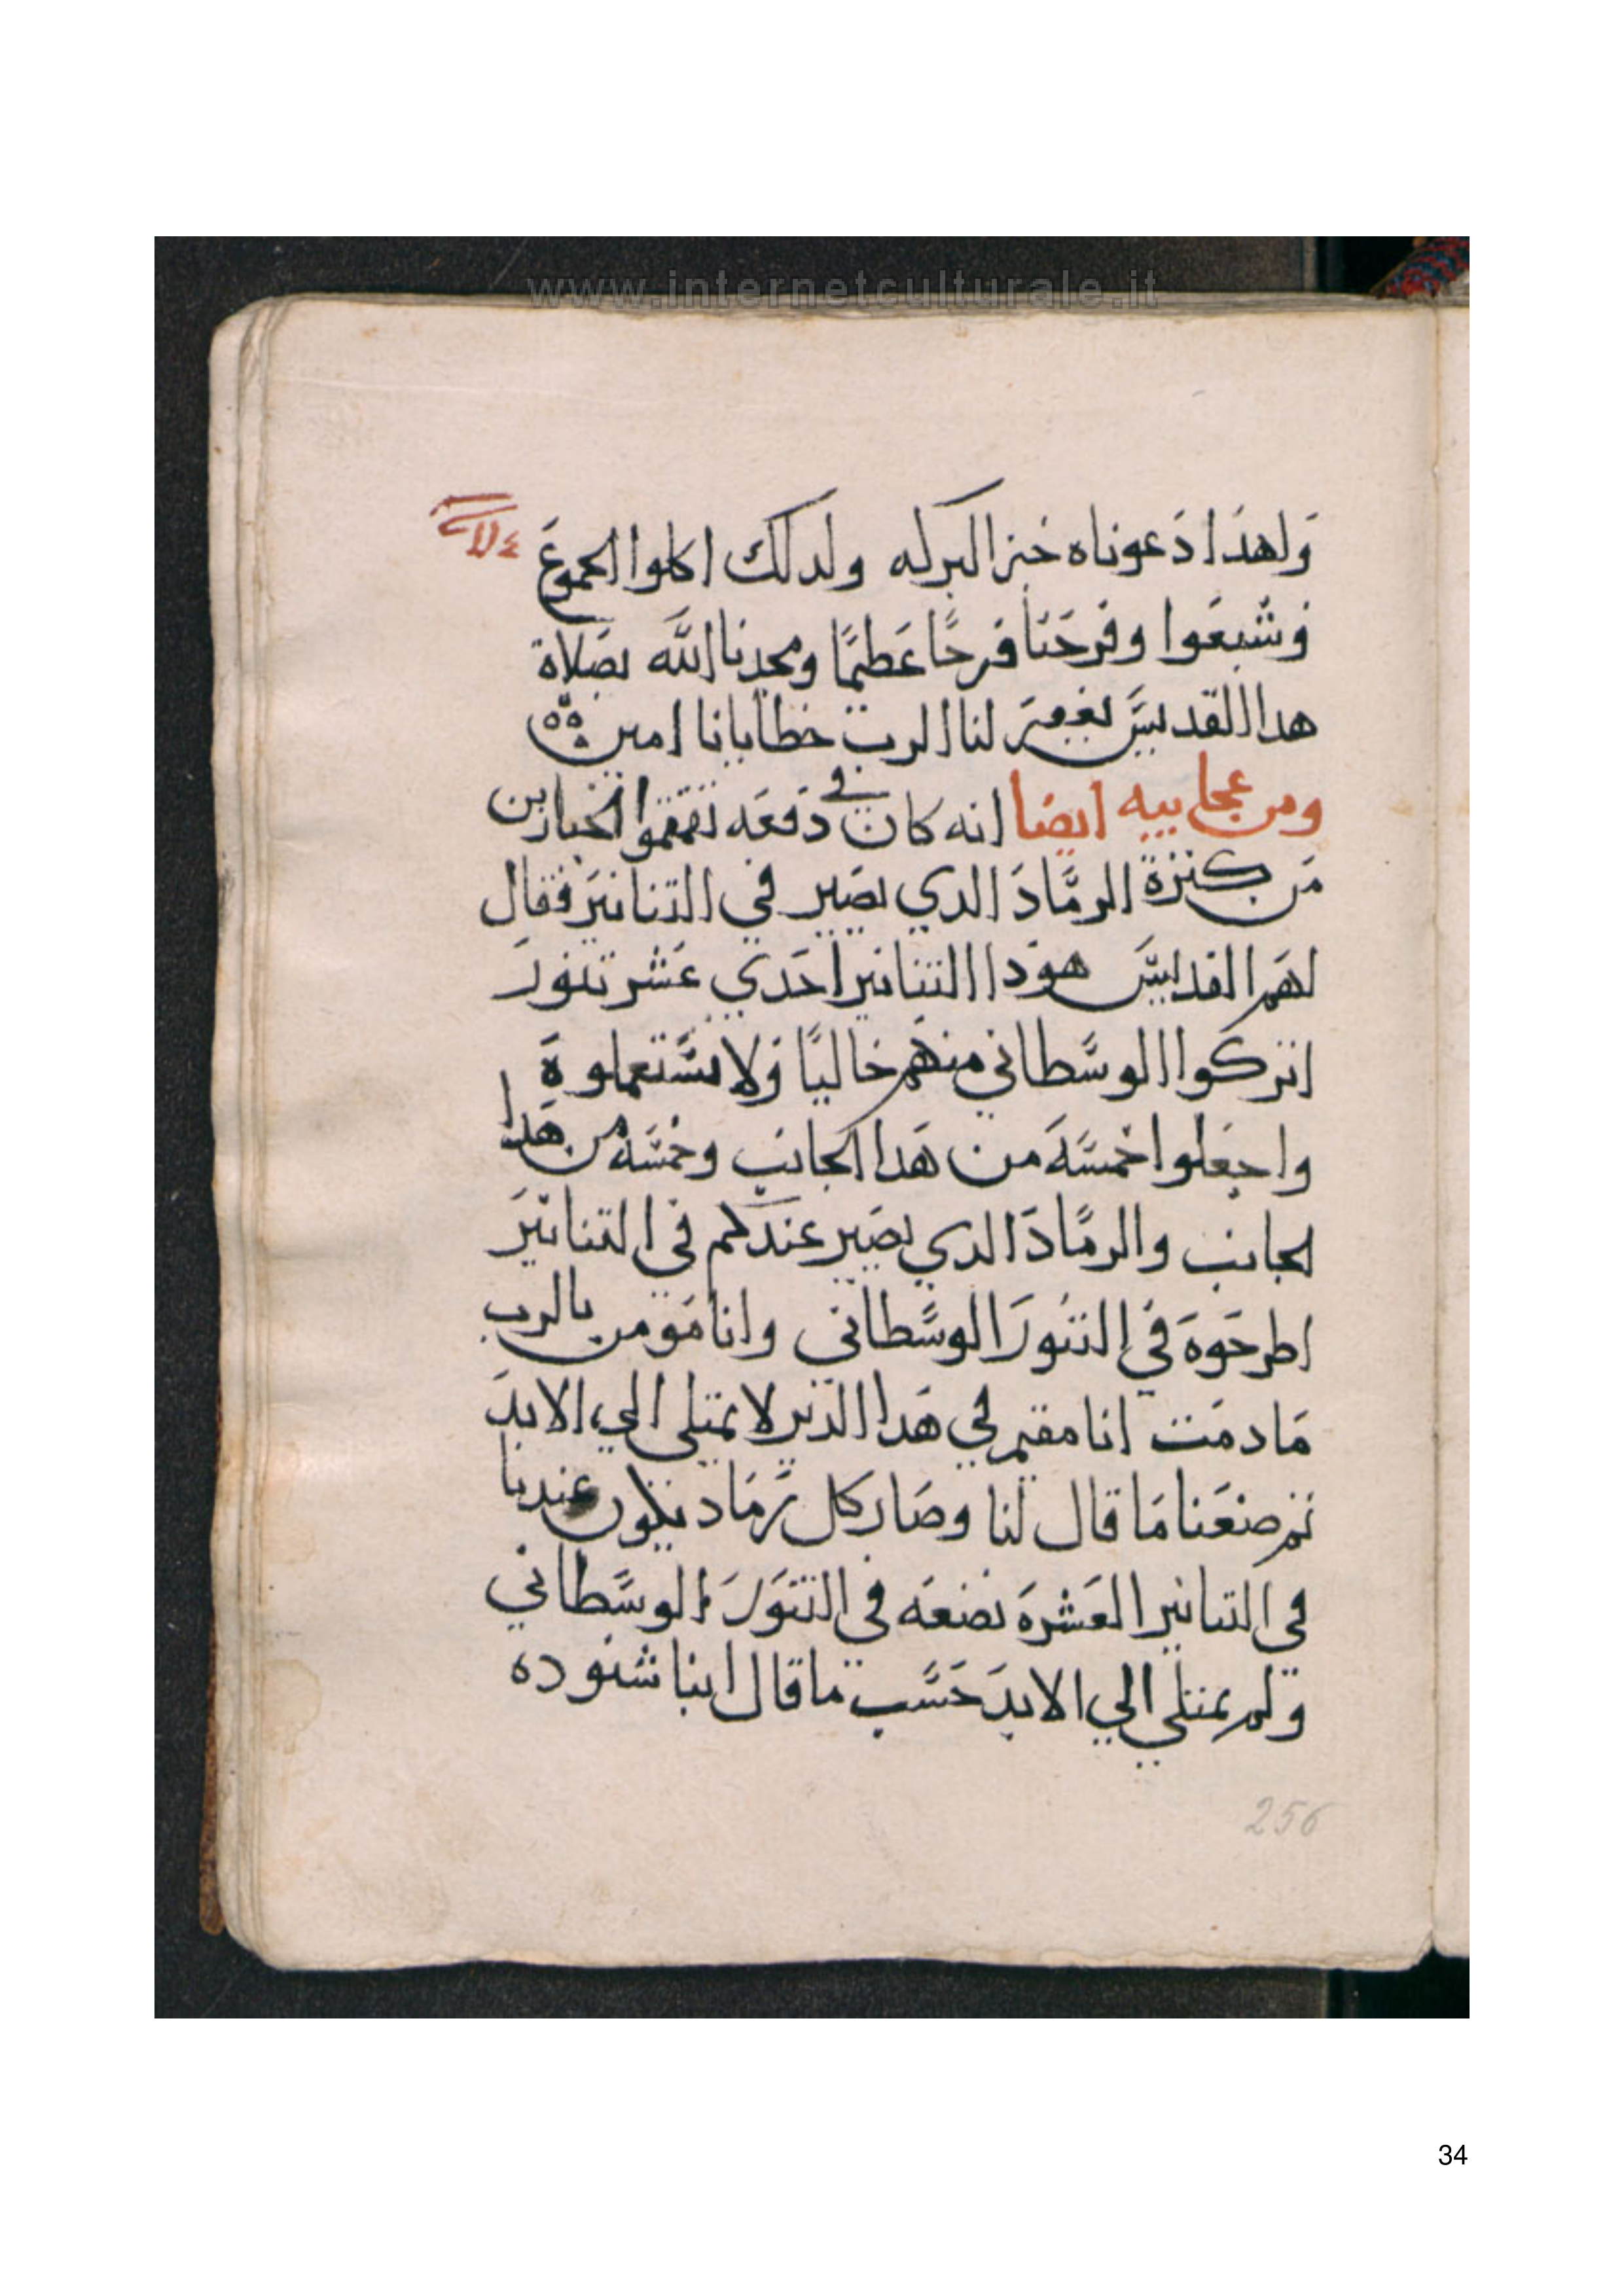 www.internetculturale.it
ولهدا دعوناه خبز البركه ولدلك اكلوا الجموع
وشبعوا وفرحنا فرحًا عظيمًا ومجدنا الله بصلاة
هدا القديس يغفر لنا الرب خطايانا امين
ومن عجايبه ايضا انه كان في دفعه تقمقموا الخبازين
من كترة الرماد الدي يصير في التنانير فقال
لهم القديس هودا التنانير احدي عشر تنور
اتركوا الوسطاني منهم خاليًا ولا تستعملوه
واجعلوا خمسه من هدا الجانب وخمسه من هدا
لجانب والرماد الدي يصير عندكم في التنانير
اطرحوه في التنور الوسطاني وانا مومن بالرب
ما دمت انا مقيم في هدا الدير لا يمتلي الي الابد
تم صنعنا ما قال لنا وصار كل رماد يكون عندنا
في التنانير العشره نضعه في التنور الوسطاني
ولم يمتلي الي الابد حسب ما قال ابنا شنوده
256
34